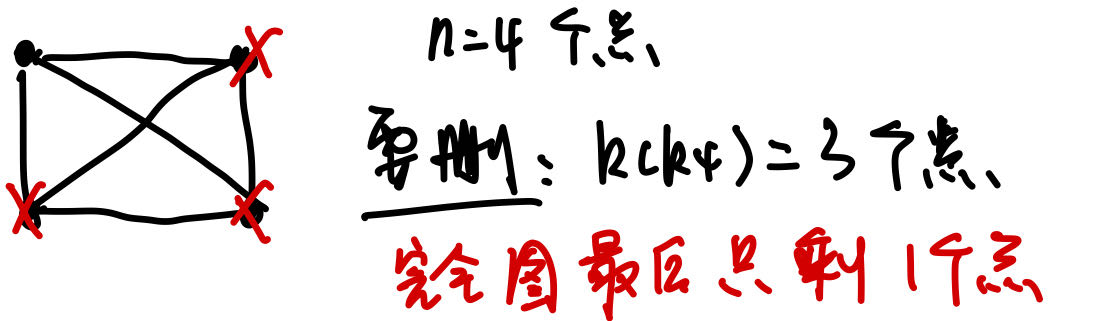 n=4 个点
要删：k(k4)=3个点
完全图最后只剩1个点